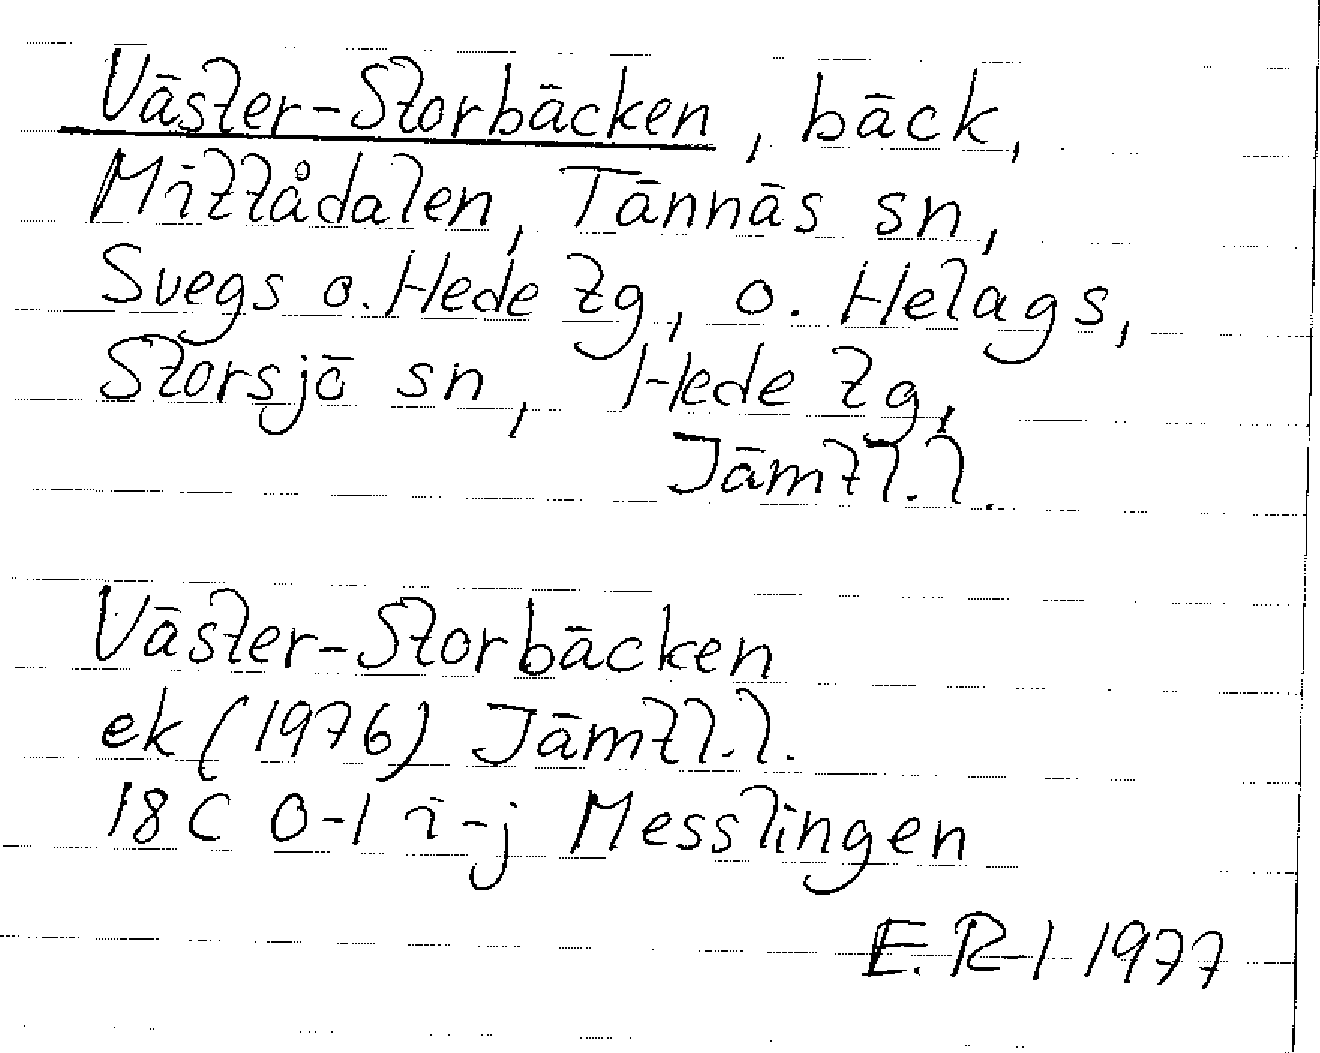 Väster-Storbäcken, bäck,
Mittådalen, Tännäs sn,
Svegs o. Hede tg, o. Helags,
Storsjö sn, Hede tg,
Jämtl. l.
Väster-Storbäcken
ek (1976) Jämtl. l.
18C 0-1 i-j Messlingen
E. R-l 1977